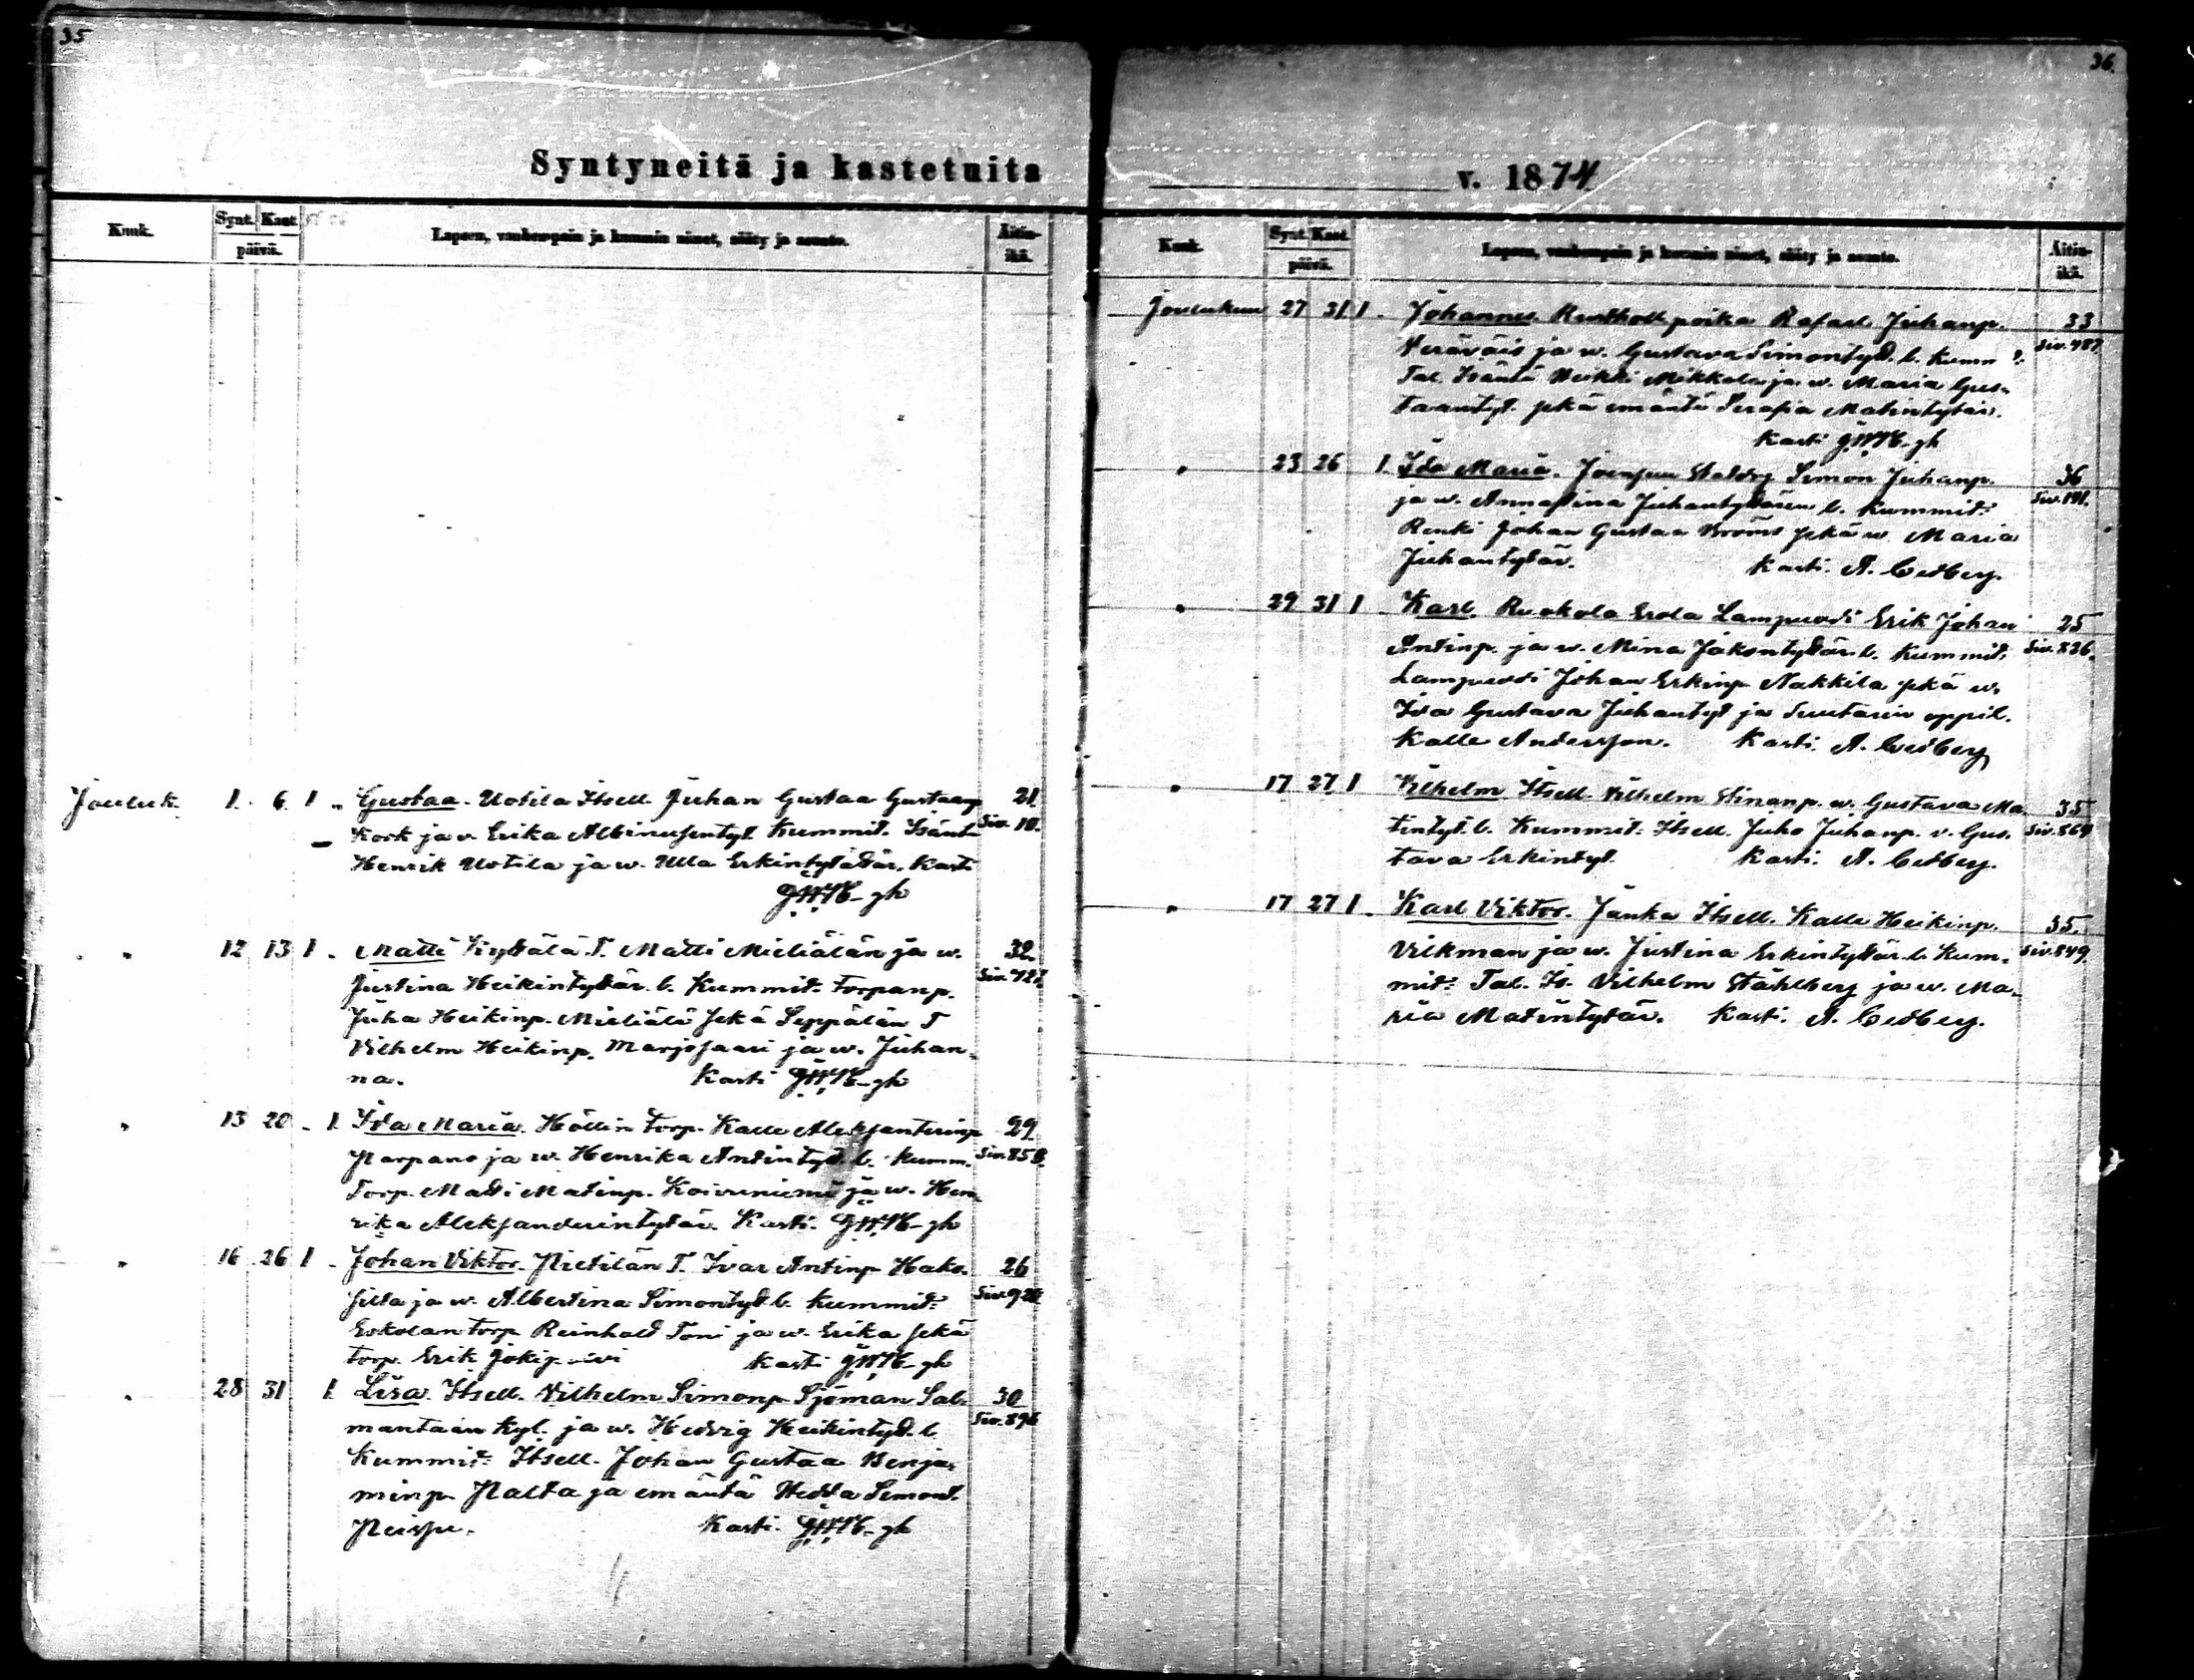 35
Syntyneitä ja kastetuita
Kuuk. Synt. Kast. päivä. Lapsen, vanhempain ja kummin nimet, sääty ja asunto. Äitin ikä.
Jouluk. 1. 6. 1 Gustaa. Uotila Itsell. Juhan Gustaa Gustaanp. 21.
Kork ja v. Erika Albinusentyt. Kummit. Isäntä Siv. 10.
Henrik Uotila ja w. Ulla Erkintytär. Kasti
12 13 1 Matti Kytälä T. Matti Mieliälän ja w. 32.
Justina Heikintytär b. Kummit. Torpanp. Siv. 727.
Juha Heikinp. Mieliälä sekä Seppälän T
Vilhelm Heikinp. Marjosaari ja w. Juhan-
na. Kasti
13 20 1 Ida Maria. Höllin Torp. Kalle Aleksanterinp. 29.
Parpano ja w. Henrika Antintyt. b. Kumm. Siv. 858.
Torp. Matti Matinp. Koivuniemi ja w. Hen-
rika Aleksanderintytär. Kasti.
16 26 1 Johan Viktor. Pietilän T. Ivar Antinp. Hako- 26
silta ja w. Albertina Simontyt. b. Kummit:
Eskolan torp. Reinhold Toni ja w. Erika sekä
torp. Erik Kasti
28 31 1 Lisa. Itsell. Vilhelm Simonp. Sjöman Sal- 30
mantaan kyl. ja w. Hedvig Heikintyt. b. Siv. 896
Kummit: Itsell. Johan Gustaa Benja-
minp. Palta ja emäntä Hedda Simont.
Peispu. Kasti.
36.
v. 1874
Kuuk. Synt. Kast. päivä. Lapsen, vanhempain ja kummin nimet, sääty ja asunto. Äitin ikä.
Joulukuu 27 31 1. Johannes. Rustholl. poika Rafael Juhanp. 33
ja w. Gustava Simontyt. b. Kumm Siv. 487
Tal. Isäntä Heikki Mikkola ja w. Maria Gus-
taantyt. sekä emäntä Serafia Matintytär.
Kasti
23 26 1. Ida Maria. Joensuu Simon Juhanp. 36
ja w. Annastina Juhantytären b. Kummit: Siv. 191.
Renki Johan Gustaa Broms sekä w. Maria
Juhantytär. Kasti. A. Cedberg.
29 31 1 Karl. Ruokola Erola Lampuodi Erik Johan 25
Antinp. ja w. Mina Jakontytär b. Kummit. Siv. 836.
Lampuodi Johan Erkinp. Nakkila sekä w.
Iva Gustava Juhantyt ja Suutarin oppil.
Kalle Andersson. Kasti. A. Cedberg
17 27 1 Vilhelm Itsell. Vilhelm Stinanp. w. Gustava Ma- 35
tintyt. b. Kummit: Itsell. Juho Juhanp. v. Gus- Siv. 869
tava Erkintyt. Kasti. A. Cedberg.
17 27 1. Karl Viktor. Junka Itsell. Kalle Heikinp. 35.
Vilkman ja w. Justina Erkintytär b. Kum- Siv. 849
mit: Tal. Is. Vilhelm Ståhlberg ja w. Ma-
ria Matintytär. Kasti. A. Cedberg.